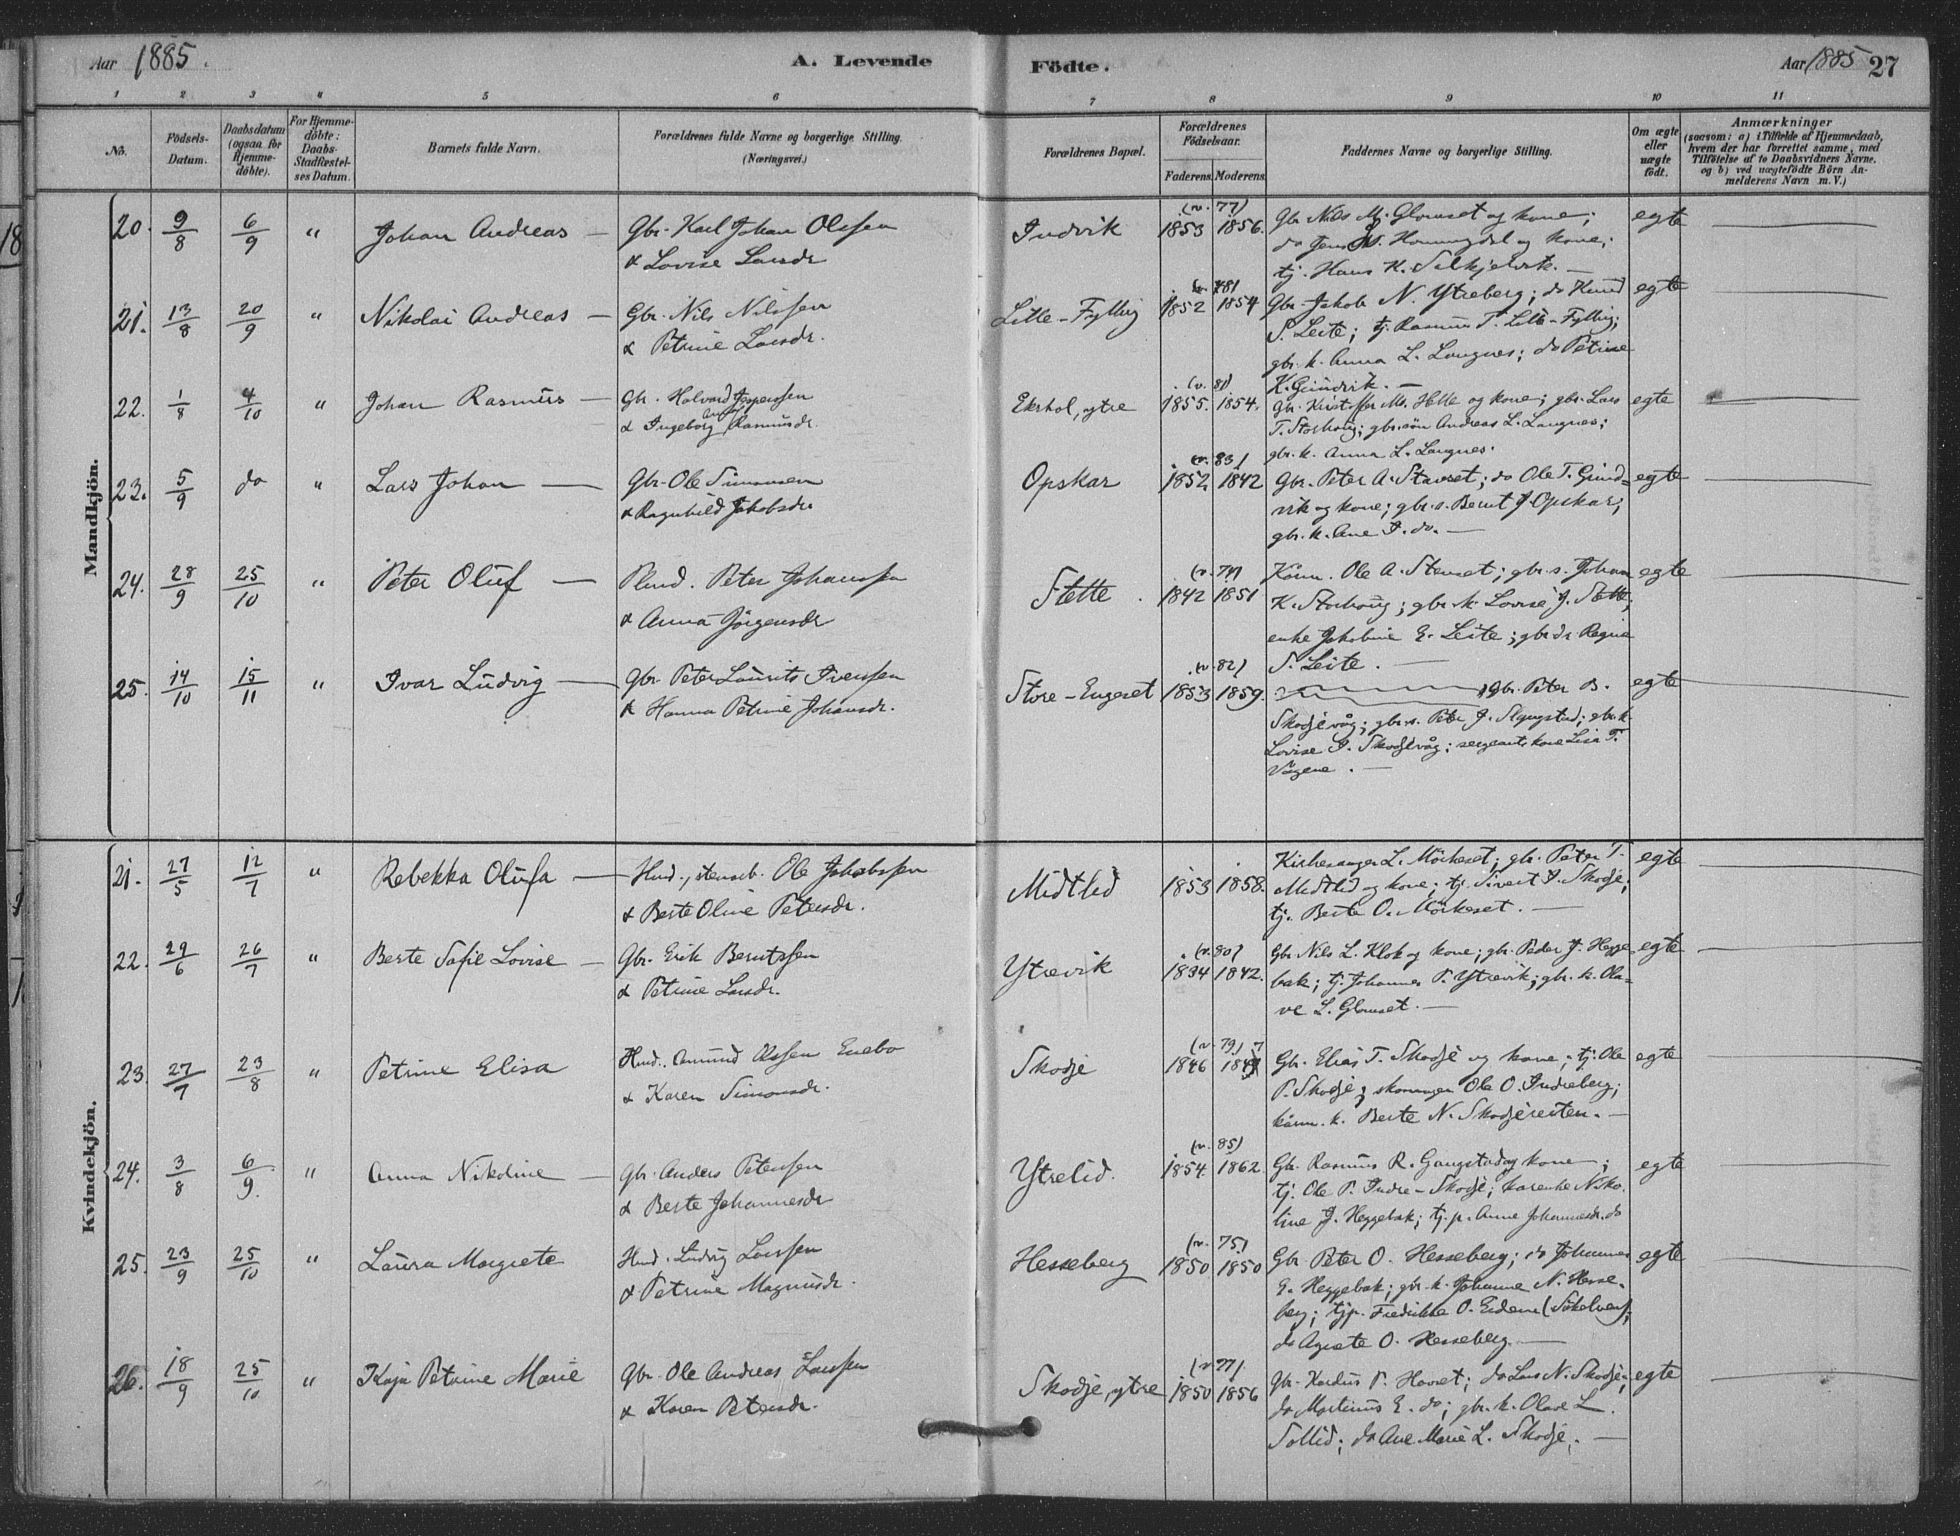 Aar 1885.
A. Levende
Födte.
Aar 1885 27
1 2 3 4 5 6 7 8 9 10 11
No.
Födsels-Datum.
Daabsdatum (ogsaa for Hjemme-döbte).
For Hjemme-döbte: Daabs-Stadfæstel-ses Datum.
Barnets fulde Navn.
Forældrenes fulde Navne og borgerlige Stilling. (Næringsvei.)
Forældrenes Bopæl.
Forældrenes Födselsaar.
Faderens. Moderens.
Faddernes Navne og borgerlige Stilling.
Om ægte eller uægte födt.
Anmærkninger
(saasom: a) i Tilfælde af Hjemmedaab,
hvem der har forrettet samme, med
Tilföielse af to Daabsvidners Navne.
og b) ved uægtefödte Börn An-
melderens Navn m. V.)
Mandkjön.
20. 9/8 6/9 " Johan Andreas — Gbr. Karl Johan Olssen
& Lovise Larsdr
Indvik (v. 77) 1853 1856.
Gbr Nils M. Glomset og kone;
do Jens Hommegdal og kone;
tj. Hans K. —
egte
21. 13/8 20/9 " Nikolai Andreas — Gbr. Nils Nilssen
& Petrine Larsdr.
Lille-Fylling 1852 1854
Gbr. Jakob N. Ytreberg; do Knud
S. Leite; tj. Rasmus T. Lille-Fylling;
gbr. k. Anna L. Langnes; do Petrine
K. Grindvik. —
egte
22. 1/8 4/10 " Johan Rasmus — Gbr. Halvard Jespersen
& Ingeborg Rasmusdr.
Ekrhol, ytre (v. 81) 1855. 1854.
Gbr. Kristoffer Ms. Helle og kone; gbr. Lars
T. Storhaug; gbr. sön Andreas L. Langnes;
gbr. k. Anna L. Langnes.
egte
23. 5/9 do " Lars Johan — Gbr. Ole Simonsen
& Ragnhild Jakobsdr
Opskar (v. 83) 1852 1842
Gbr. Peter A. Stavset; do Ole T. Grind-
vik og kone; gbr. s. Bernt J Opskar;
gbr. k. Ane J. do. —
egte
24. 28/9 25/10 " Peter Oluf — Plmd. Peter Johanssen
& Anna Jörgensdr
Stette. 1842 1851
Kårm. Ole A. Stenset; gbr. s. Johan
K. Storhaug; gbr. k. Lovise J. Stette;
enke Jakobine E. Leite; gbr. dr Regine
S. Leite. —
egte
25. 14/10 15/11 " Ivar Ludvig — Gbr Peter Laurits Iverssen
& Hanna Petrine Johansdr.
Store-Engeset (v. 82) 1853 1859.
gbr. Peter B.
Skodjevåg; gbr. s. Peter J. ; gbr. k.
Lovise P. Skodjevåg; sergeants kone Lisa T.
Vågene. —
egte
Kvindekjön.
21. 27/5 12/7 " Rebekka Olufa — Hmd., stenarb. Ole Jakobssen
& Berte Oline Petersdr.
Midtlid 1853 1858.
Kirkesanger L. Mörkeset; gbr. Peter T.
Midtlid og kone; tj. Sivert P. Skodje;
tj. Berte O. Mörkeset. —
egte
22. 29/6 26/7 " Berte Sofie Lovise — Gbr. Erik Berntssen
& Petrine Larsdr.
Ytrevik (v. 80) 1834 1842.
Gbr Nils L. Klok og kone; gbr. Peder J. Hegge-
bak; tj. Johannes P. Ytrevik; gbr. k. Ola-
ve L. Glomset. —
egte
23. 27/7 23/8 " Petrine Elisa Hmd. Amund Olssen Enebo
& Karen Simonsdr.
Skodje (v. 79) 1846
Gbr. Elias T. Skodje og kone; tj. Ole
P. Skodje; skomager Ole O. Indreberg;
kårm. k. Berte N. Skodjereiten. —
egte
24. 3/8 6/9. " Anna Nikoline — Gbr. Anders Petersen
& Berte Johannesdr
Ytrelid. (v. 85) 1854. 1862.
Gbr. Rasmus R. Gangstad og kone;
tj. Ole P. Indre-Skodje; kårenke Niko-
line J. Heggebak; tj. p. Anne Johannesdr. do
egte
25. 23/9 25/10 " Laura Margrete Hmd. Ludvig Larssen
& Petrine Magnusdr.
Hesseberg (v. 75) 1850 1850
Gbr Peter O. Hesseberg; do Johannes
E. Heggebak; gbr. k. Johanne N. Hesse-
berg; tjp. Fredrikke O. Eidem (Sökelven);
do Agnete O. Hesseberg. —
egte
26. 18/9 25/10 " Kaja Petrine Marie Gbr. Ole Andreas Larssen
& Karen Petersdr.
Skodje, ytre (v 77) 1850 1856
Gbr. Kardus P. Havset; do Lars N. Skodje;
do Martinus E. do; gbr. k. Olave L.
Sollid; do Ane Marie L. Skodje. —
egte